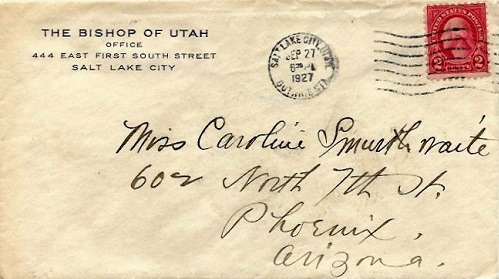 THE BISHOP OF UTAH
OFFICE
444 EAST FIRST SOUTH STREET
SALT LAKE CITY
SALT LAKE CITY, UTAH
SEP 27
1927
UNITED STATES POSTAGE
2 CENTS 2
Miss Caroline Smurthwaite
602 North 7th St.
Phoenix,
Arizona.